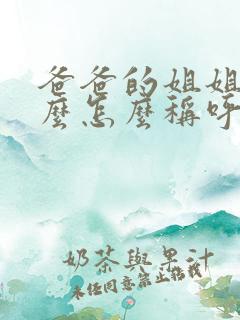 爸爸的姐姐
麼怎麼稱呼
奶茶與果汁
未經同意禁止搭載